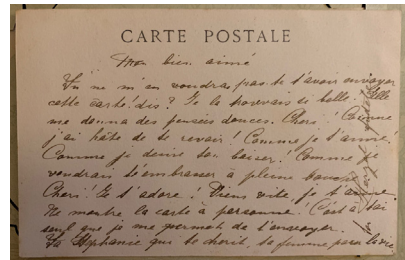 CARTE POSTALE
Mon bien aimé
Tu ne m'en voudras pas de t'avoir envoyer
cette carte dis? Je la trouvais si belle. Elle
me donna des pensées douces. Cheri! Comme
j'ai hâte de te revoir! Comme je t'aime!
Comme je desire ton baiser! Comme je
voudrais t'embrasser à pleine bouche
Cheri! Je t'adore! Viens vite, je t'aime.
Ne montre la carte à personne. C'est à toi
seul que je me permet de l'envoyer.
Ta Stéphanie qui te cherit, ta femme pour la vie